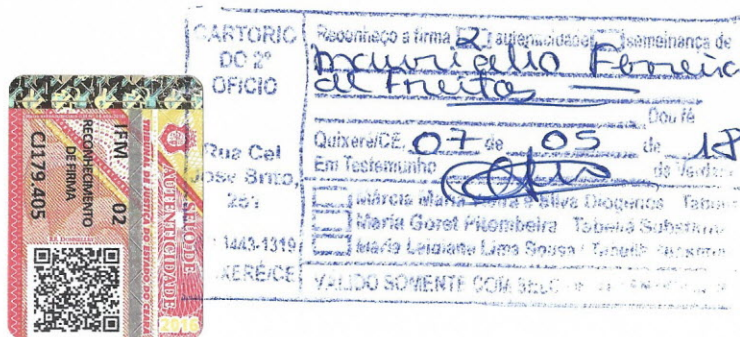 CARTORIO
DO 2º
OFICIO
Rua Cel
José Brito,
1443-1319
XERÉ/CE
Reconheço a firma autenticidade semelhança de
Ferreira
de Freitas
Dou fé
Quixeré/CE, 07 de 05 de 18
Em Testemunho da Verda
Márcia Maria Diogenes
Maria Goret Pitombeira
Maria Leidiane Lima Sousa
VALIDO SOMENTE COM SELO
SELO DE
AUTENTICIDADE
TRIBUNAL DE JUSTIÇA DO ESTADO DO CEARÁ
2016
02
RECONHECIMENTO
DE FIRMA
CJ179.405